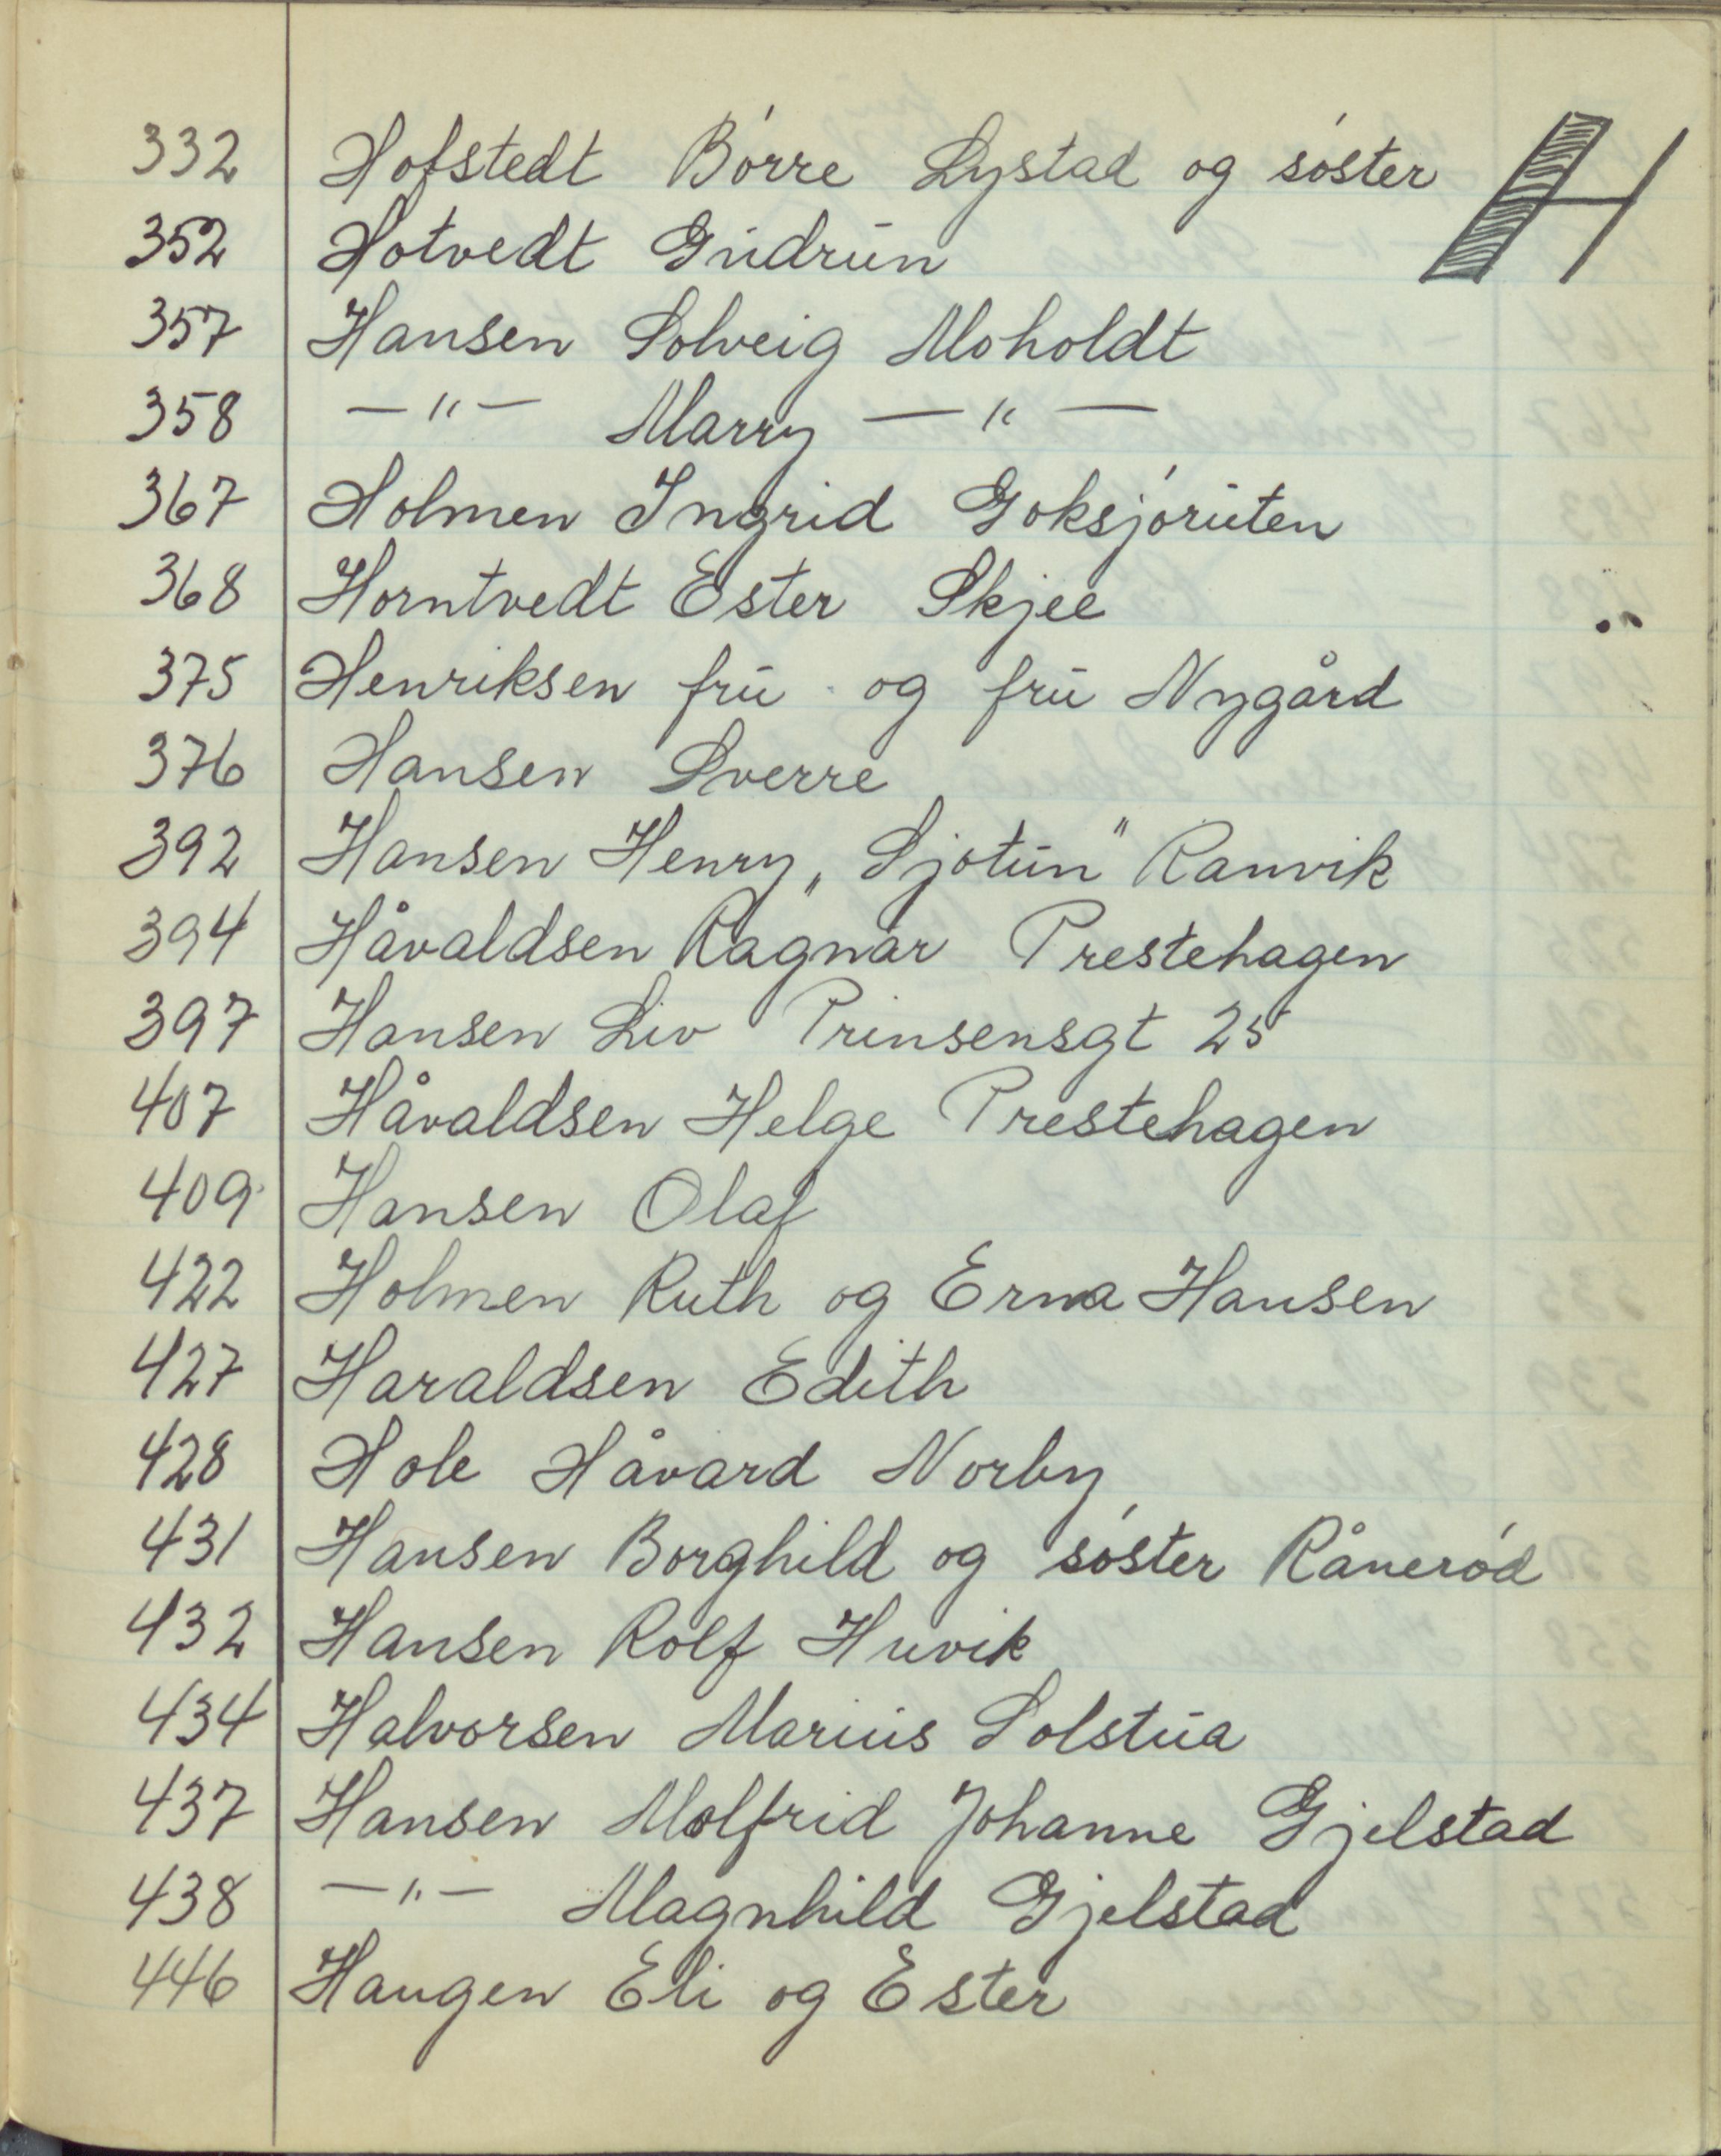 H
332 Hofstedt Börre Lystad og söster
352 Hotvedt Gudrun
357 Hansen Solveig Moholdt
358 —"— Marry —"—
367 Holmen Ingrid Goksjöruten
368 Horntvedt Ester Skjee
375 Henriksen fru og fru Nygård
376 Hansen Sverre
392 Hansen Henry „Sjötun" Ranvik
394 Håvaldsen Ragnar Prestehagen
397 Hansen Liv Prinsensgt 25
407 Håvaldsen Helge Prestehagen
409 Hansen Olaf
422 Holmen Ruth og Erna Hansen
427 Haraldsen Edith
428 Hole Håvard Norby
431 Hansen Borghild og söster Rånerød
432 Hansen Rolf Huvik
434 Halvorsen Marius Solstua
437 Hansen Molfrid Johanne Gjelstad
438 —"— Magnhild Gjelstad
446 Haugen Eli og Ester